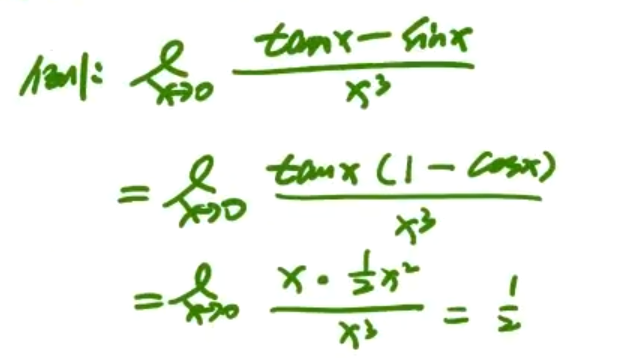 例: lim_{x→0} \frac{tanx - sinx}{x^3}
= lim_{x→0} \frac{tanx(1 - cosx)}{x^3}
= lim_{x→0} \frac{x · \frac{1}{2}x^2}{x^3} = \frac{1}{2}